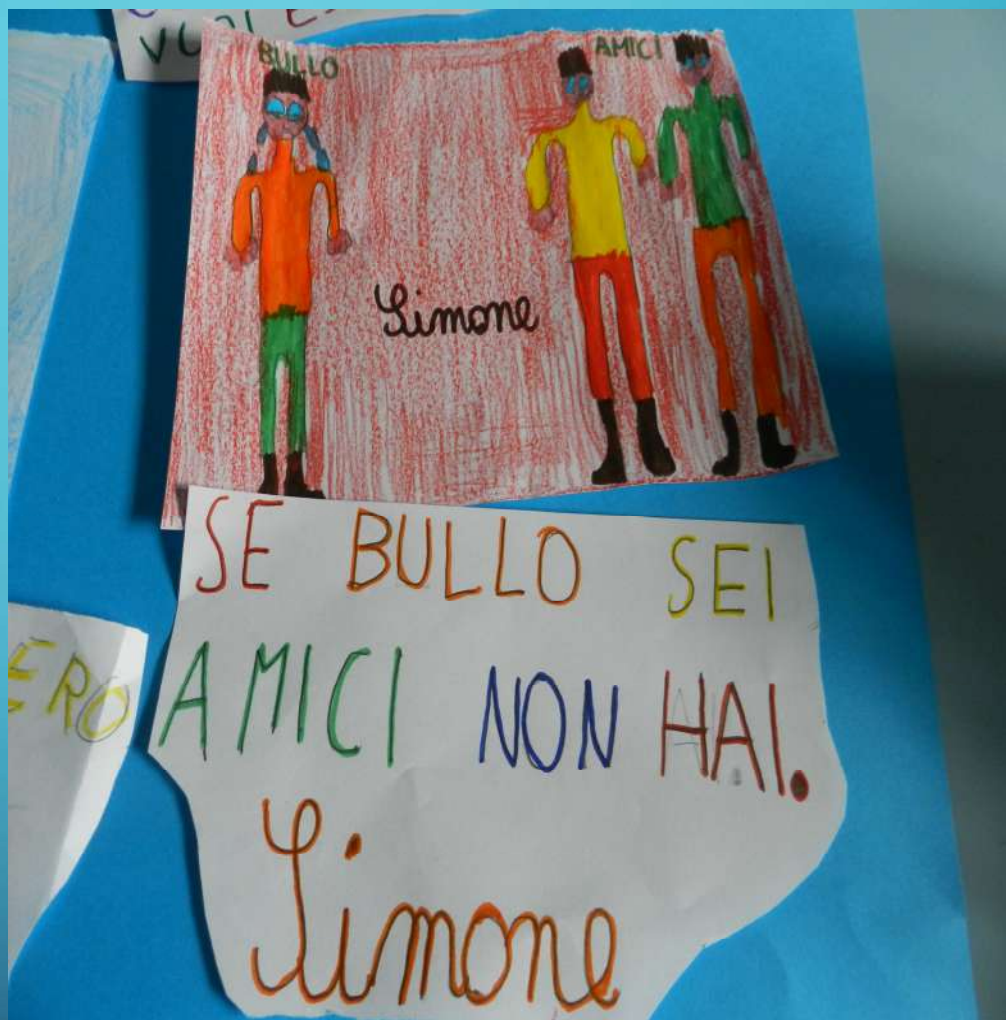 VUOI
BULLO
AMICI
Simone
SE BULLO SEI
AMICI NON HAI.
Simone
ERO